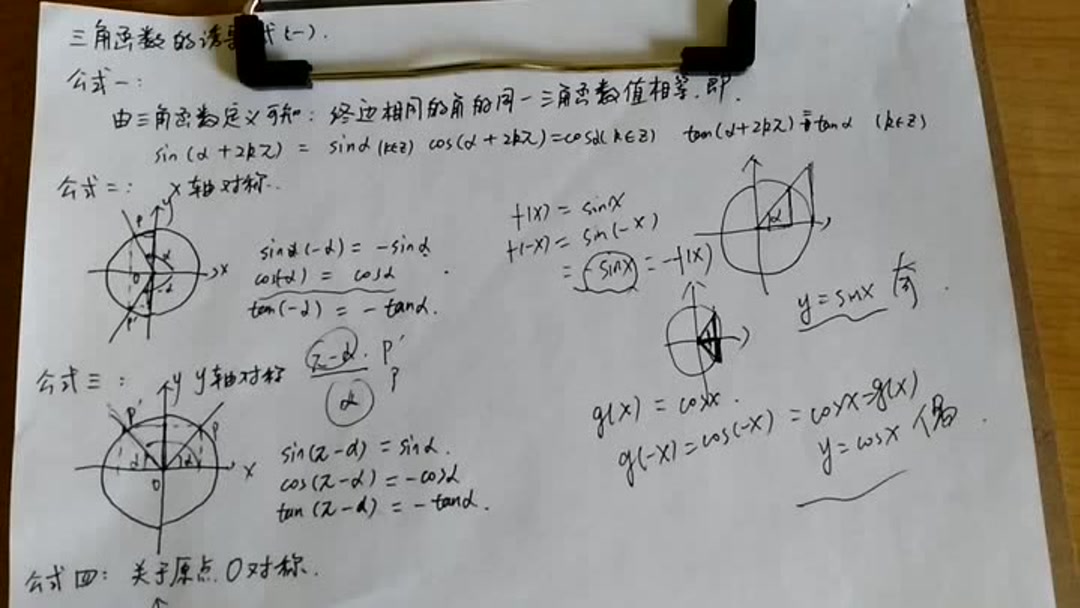 三角函数的诱导 式(一).
公式一:
由三角函数定义可知: 终边相同的角的同一三角函数值相等. 即.
sin(α+2kπ) = sinα(k∈Z) cos(α+2kπ)=cosα(k∈Z) tan(α+2kπ)=tanα (k∈Z)
公式二: x轴对称.
y
P
α
O
x
-α
P'
sinα(-α) = -sinα
cos(-α) = cosα
tan(-α) = -tanα.
f(x) = sinx
f(-x) = sin(-x)
= -sinx = -f(x)
α
y=sinx 奇
公式三: y轴对称
π-α. P'
α P
y
P'
P
α
α
O
x
sin(π-α) = sinα.
cos(π-α) = -cosα
tan(π-α) = -tanα.
g(x) = cosx.
g(-x)=cos(-x) = cosx=g(x)
y=cosx 偶
公式四: 关于原点O对称.